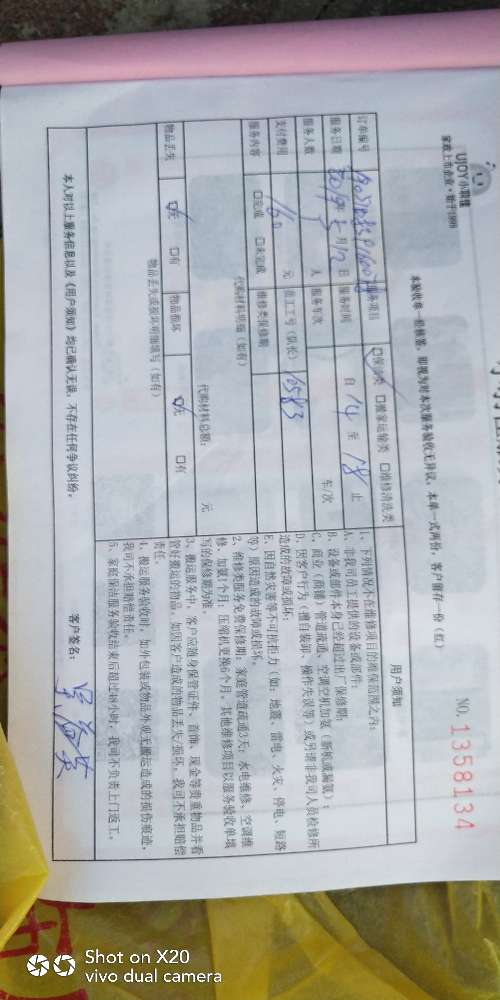 UJOY小羽佳
家政上市企业·始于1999
本验收单一经核签，即视为对本次服务验收无异议，本单一式两份，客户留存一份（红）
NO. 1358134
订单编号
服务项目
保洁类 □搬家运输类 □维修清洗类
服务日期 2019年5月12日 服务时间 自 14 至 18 止
服务人数 人 服务车次 车/次
支付费用 160 元 员工工号（队长） 10583
服务内容 □完成 □未完成 维修类保修期
代购材料明细（如有）
代购材料总额： 元
物品丢失 无 □有 物品损坏 无 □有
物品丢失或损坏明细填写（如有）
用户须知
1、下列情况不在维修项目的准保范围之内：
A、非我司员工提供的设备或部件；
B、设备或部件本身已经超过出厂保修期；
C、商业（商铺）管道疏通、空调空机加氨（新机或漏氨）；
D、因客户行为（擅自装卸、操作失误等）或另请非我司人员检修所
造成的故障或损坏；
E、因自然灾害等不可抗拒力（如：地震、雷电、火灾、停电、短路
等）原因造成的故障或损坏。
2、维修类服务免费保修期：家庭管道疏通3天；水电维修、空调维
修、加氨1个月；压缩机更换6个月，其他维修项目以服务验收单填
写的保修期为准。
3、搬运服务中，客户应随身保管证件、首饰、现金等贵重物品并看
管好搬运的物品，如因客户造成的物品丢失/损坏，我司不承担赔偿
责任。
4、搬运服务验收时，如外包装或物品外观无搬运造成的损伤痕迹，
我司不承担赔偿责任。
5、家庭保洁服务验收结束后超过48小时，我司不负责上门返工。
本人对以上服务信息以及《用户须知》均已确认无误，不存在任何争议纠纷。
客户签名：
Shot on X20
vivo dual camera